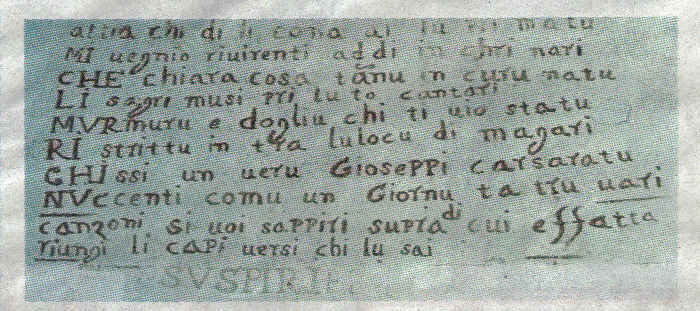 chi di li cosa
MI uegnio riuirenti addi in nari
CHE chiara cosa tanu in curu natu
LI sagri musi pri lu to cantari
MVRmuru e dogliu chi ti uio statu
RI strittu in tra lulocu di magari
CHIssi un ueru GIOSePPi carsaratu
NVccenti comu un Giornu uari
canzoni si uoi sappiri supra di cui effatta
riungi li capi uersi chi lu sai